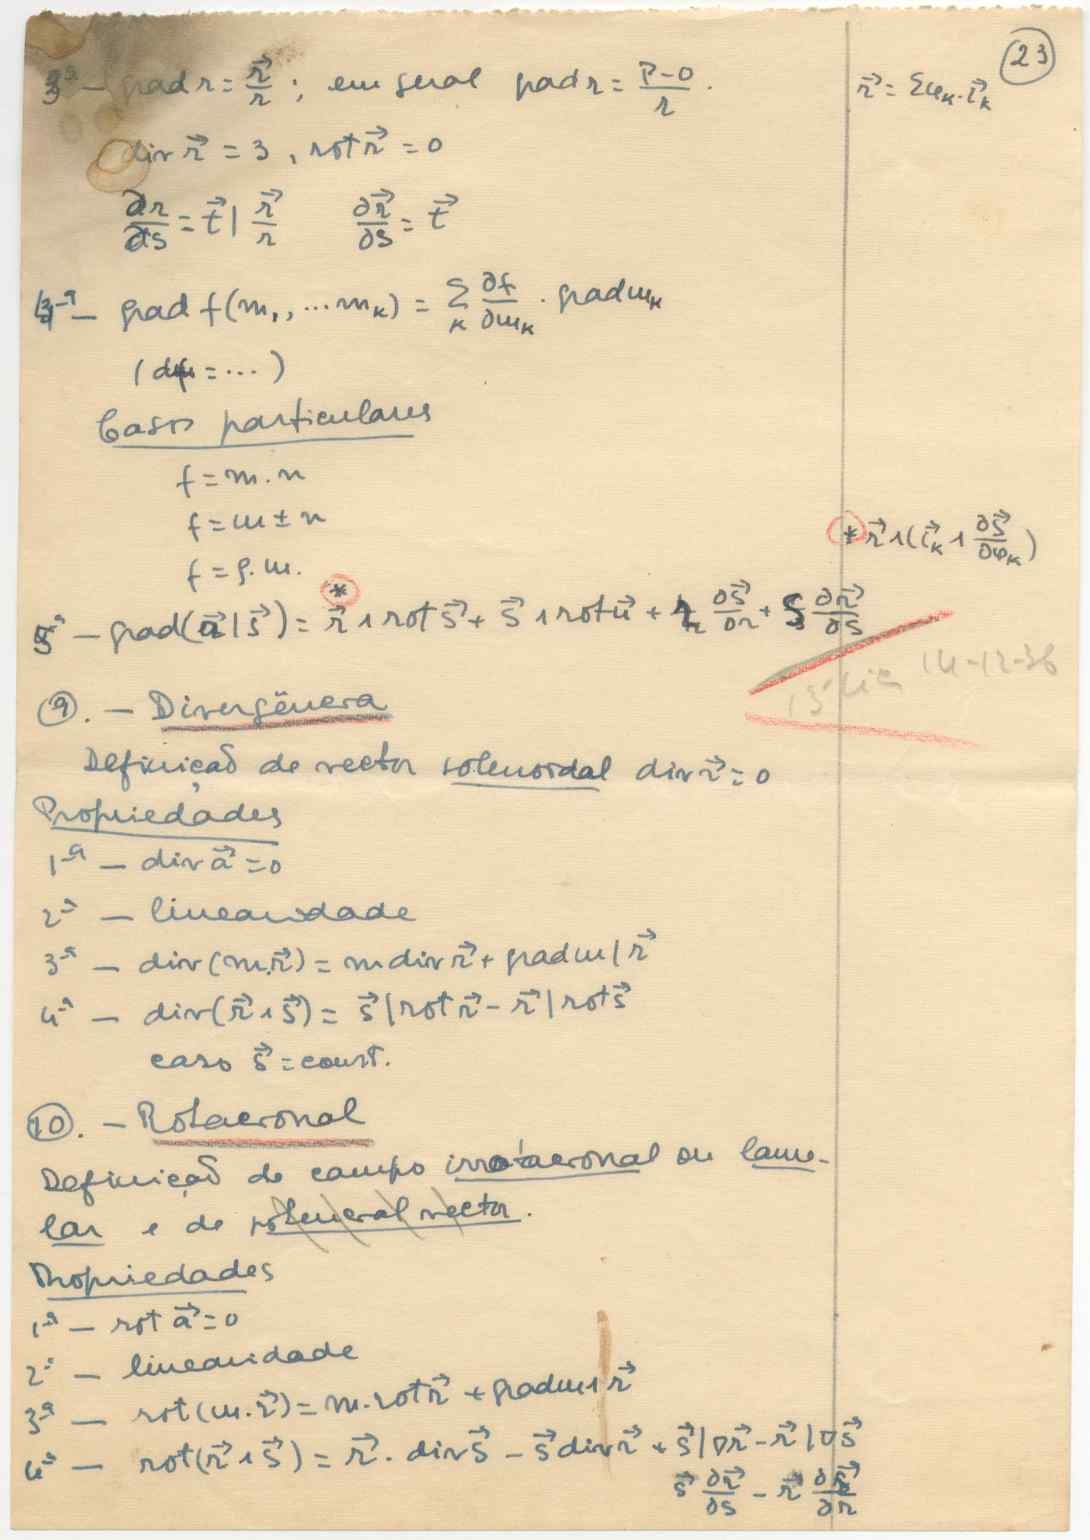 23
3ª — grad r = r⃗/r ; em geral grad r = P-O/r .
r⃗ = Σu_k . i⃗_k
div r⃗ = 3 , rot r⃗ = 0
∂r/∂s = t⃗ | r⃗/r ∂r⃗/∂s = t⃗
4ª — grad f(m₁, ... m_k) = Σ_k ∂f/∂m_k . grad m_k
( df = ... )
Casos particulares
f = m . n
f = m ± n
f = ρ . m .
* r⃗ ∧ ( i⃗_k ∧ ∂s⃗/∂x_k )
*
5ª — grad( r⃗ | s⃗ ) = r⃗ ∧ rot s⃗ + s⃗ ∧ rot r⃗ + r ∂s⃗/∂r + s ∂r⃗/∂s
14-12-36
9. — Divergência
Definição de vector solenoidal div r⃗ = 0
Propriedades
1ª — div a⃗ = 0
2ª — linearidade
3ª — div(m.r⃗) = m div r⃗ + grad m | r⃗
4ª — div( r⃗ ∧ s⃗ ) = s⃗ | rot r⃗ - r⃗ | rot s⃗
caso s⃗ = const.
10. — Rotacional
Definição de campo irrotacional ou lame-
lar e de vector .
Propriedades
1ª — rot a⃗ = 0
2ª — linearidade
3ª — rot(m . r⃗) = m . rot r⃗ + grad m ∧ r⃗
4ª — rot( r⃗ ∧ s⃗ ) = r⃗ . div s⃗ - s⃗ div r⃗ + s⃗ | ∇r⃗ - r⃗ | ∇s⃗
s⃗ ∂r⃗/∂s - r⃗ ∂s⃗/∂r